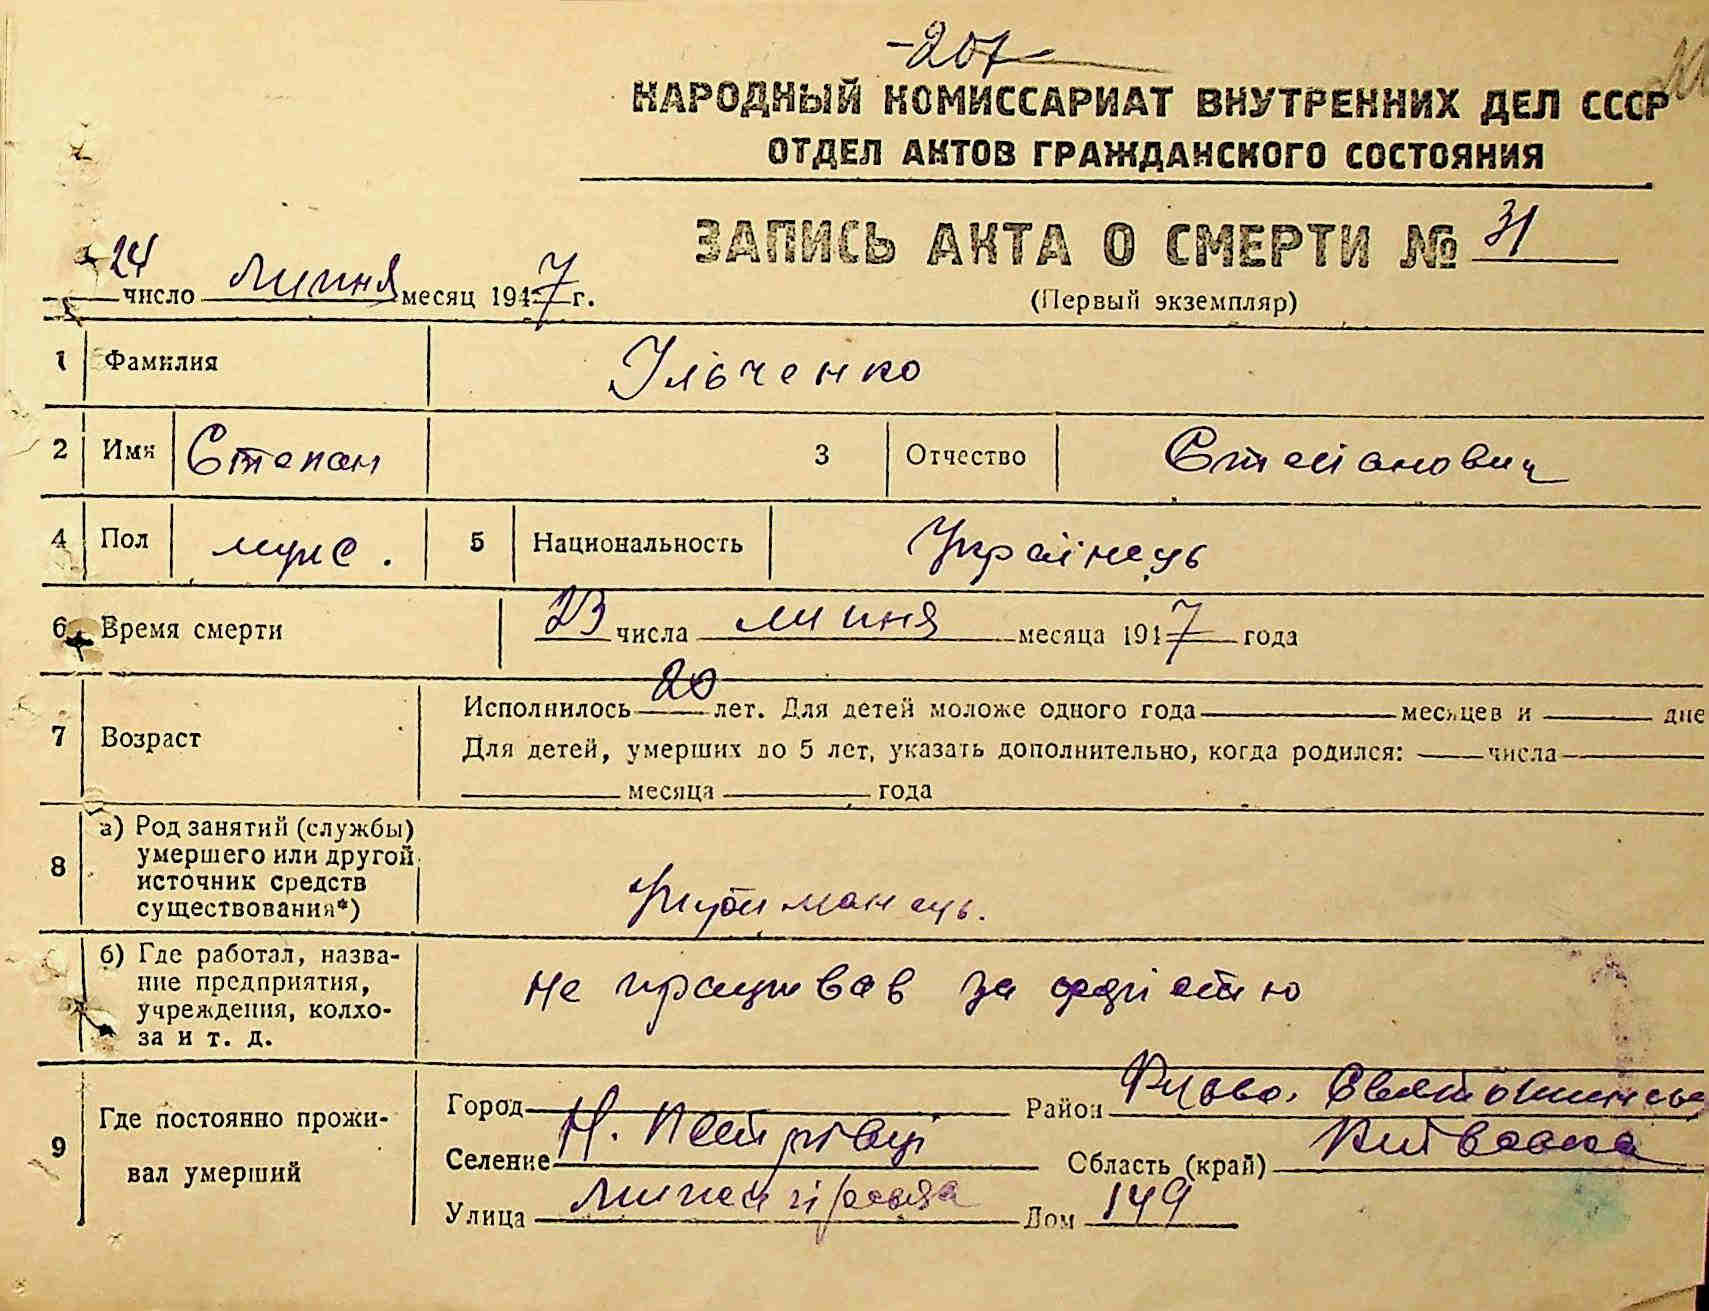 -207-
НАРОДНЫЙ КОМИССАРИАТ ВНУТРЕННИХ ДЕЛ СССР
ОТДЕЛ АКТОВ ГРАЖДАНСКОГО СОСТОЯНИЯ
ЗАПИСЬ АКТА О СМЕРТИ № 31
(Первый экземпляр)
24 число липня месяц 1947 г.
1 Фамилия Ільченко
2 Имя Степан 3 Отчество Степанович
4 Пол муж. 5 Национальность Українець
6 Время смерти 23 числа липня месяца 1947 года
7 Возраст Исполнилось 20 лет. Для детей моложе одного года месяцев и дне
Для детей, умерших до 5 лет, указать дополнительно, когда родился: числа
месяца года
8 а) Род занятий (службы)
умершего или другой
источник средств
существования*)
Утриманець.
б) Где работал, назва-
ние предприятия,
учреждения, колхо-
за и т. д.
Не працював за
9 Где постоянно прожи-
вал умерший
Город Район Києво. Святошинськ
Селение Н. Петрівці Область (край) Київська
Улица Дом 149